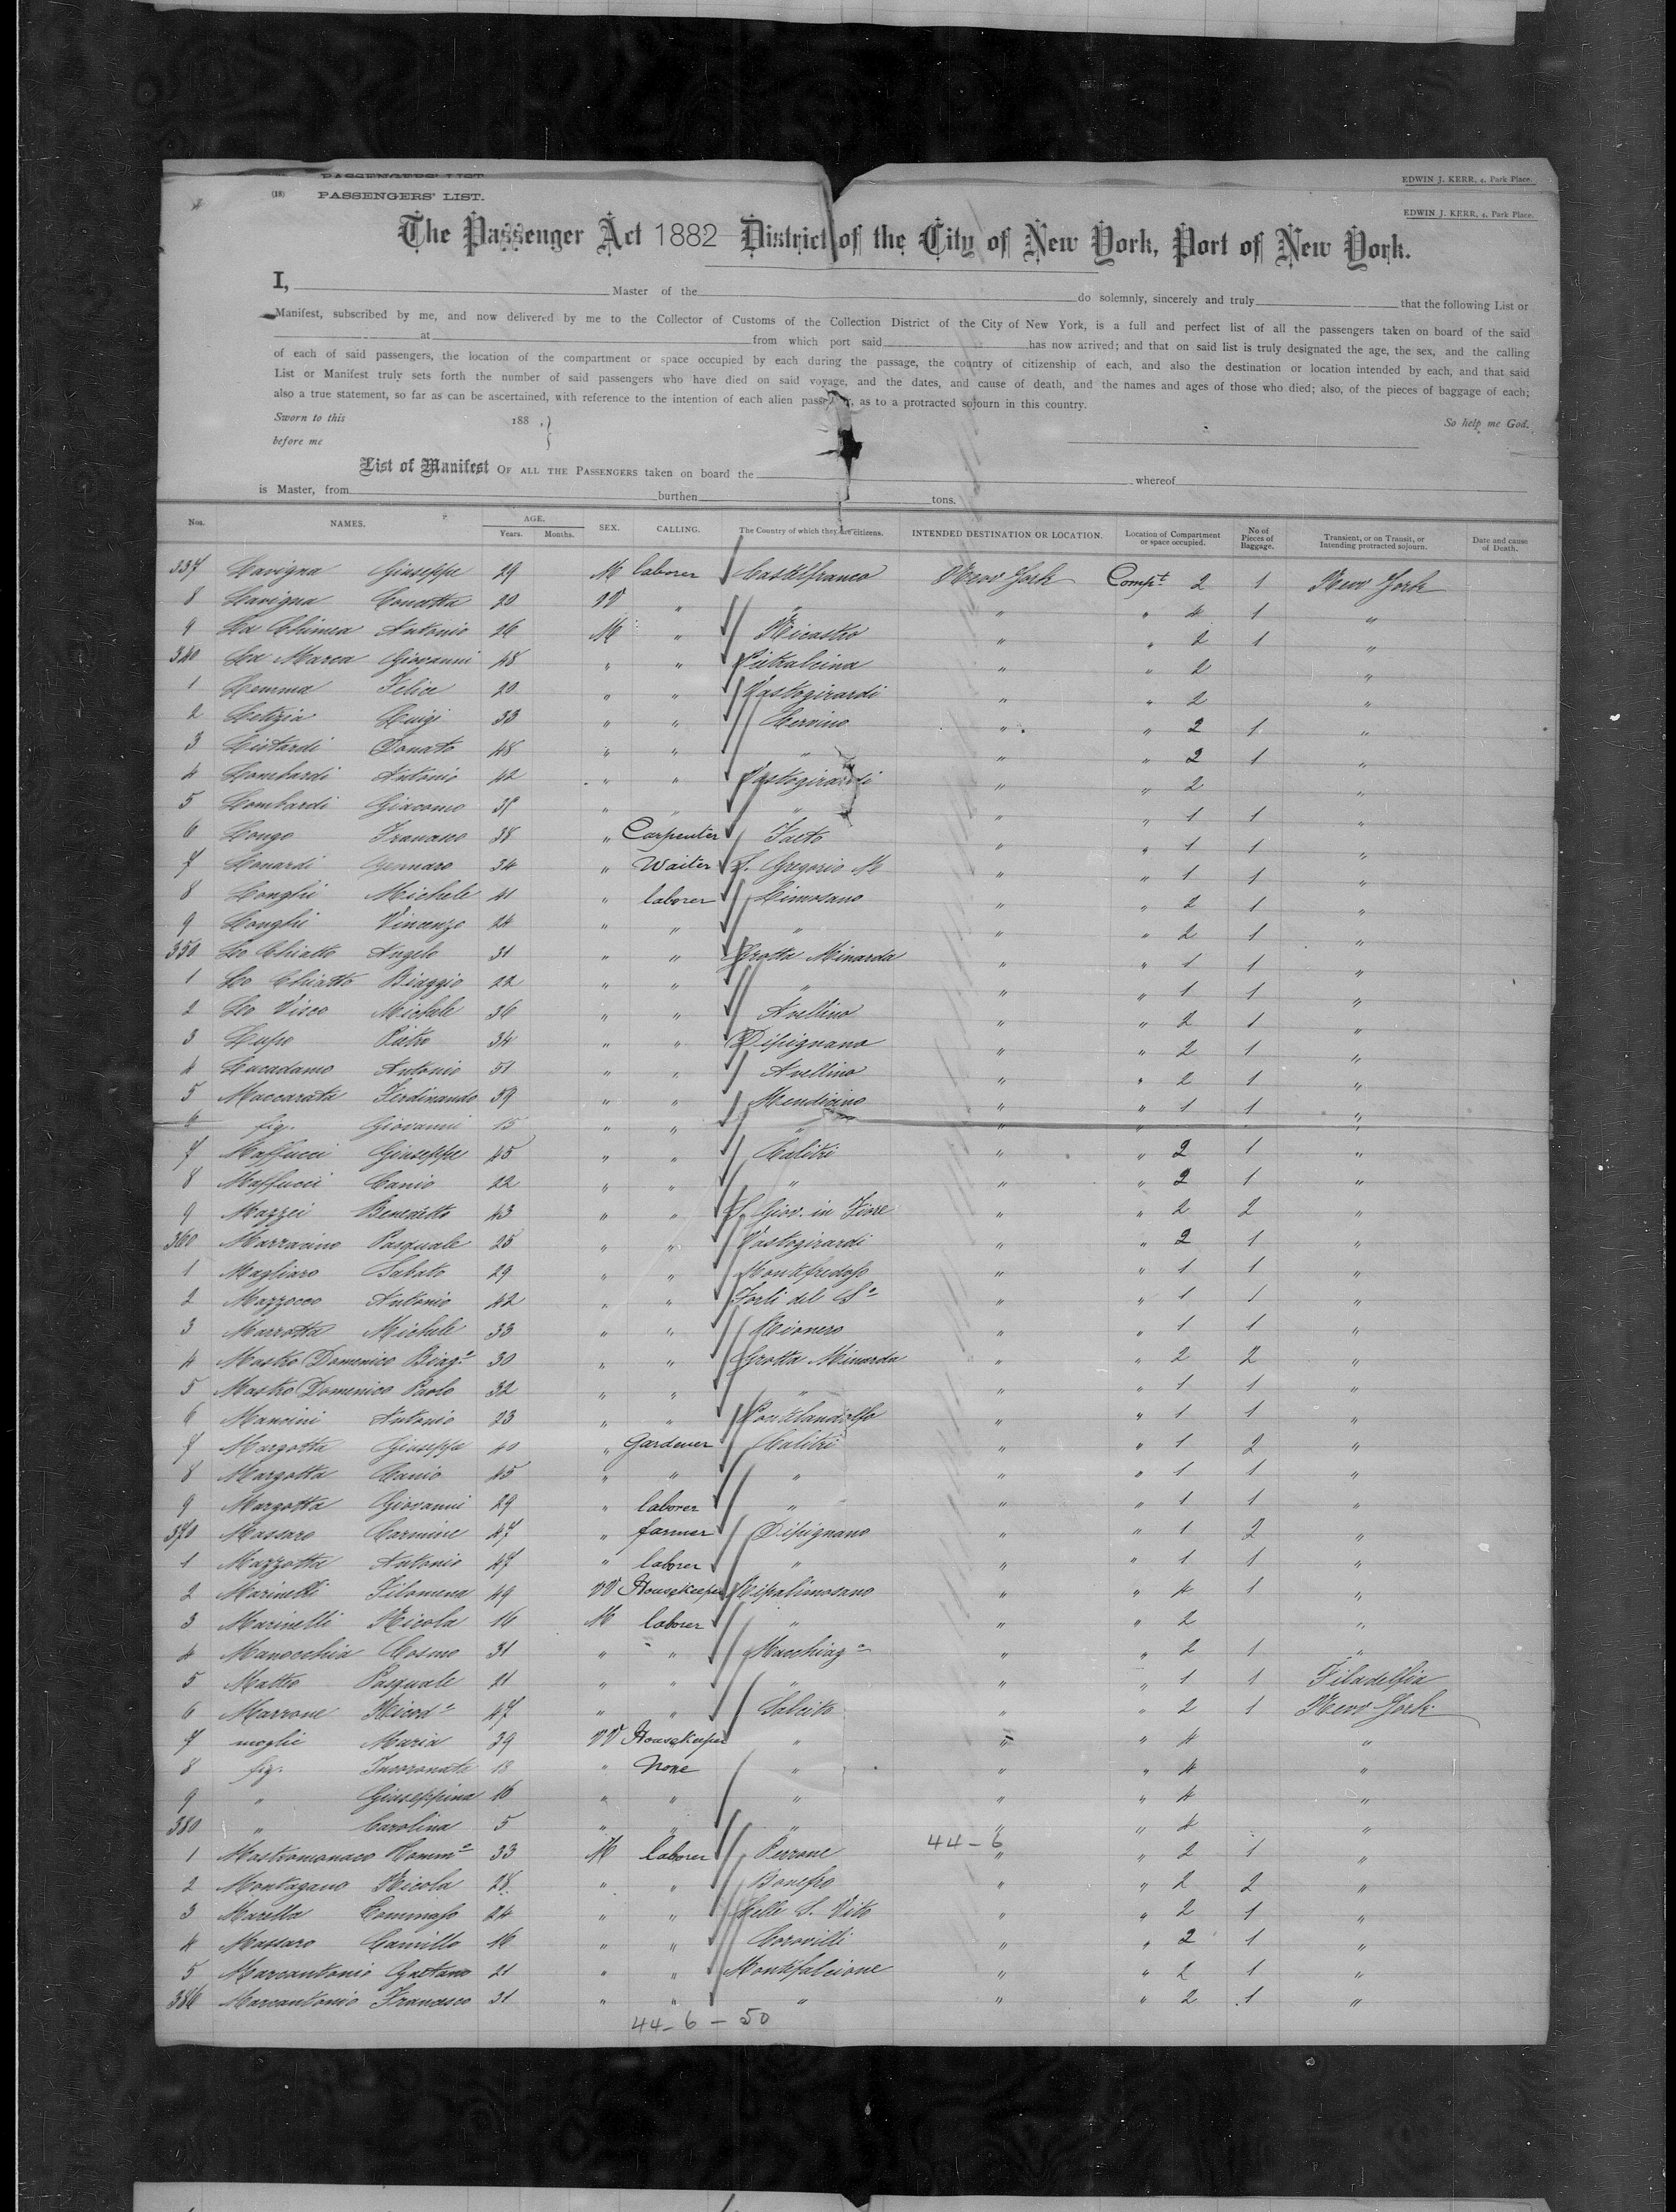 PASSENGERS' LIST.
EDWIN J. KERR, 4, Park Place.
(18) PASSENGERS' LIST.
EDWIN J. KERR, 4, Park Place.
The Passenger Act 1882 District of the City of New York, Port of New York.
I, Master of the do solemnly, sincerely and truly that the following List or
Manifest, subscribed by me, and now delivered by me to the Collector of Customs of the Collection District of the City of New York, is a full and perfect list of all the passengers taken on board of the said
at from which port said has now arrived; and that on said list is truly designated the age, the sex, and the calling
of each of said passengers, the location of the compartment or space occupied by each during the passage, the country of citizenship of each, and also the destination or location intended by each, and that said
List or Manifest truly sets forth the number of said passengers who have died on said voyage, and the dates, and cause of death, and the names and ages of those who died; also, of the pieces of baggage of each;
also a true statement, so far as can be ascertained, with reference to the intention of each alien as to a protracted sojourn in this country.
Sworn to this 188 . } So help me God.
before me
List of Manifest OF ALL THE PASSENGERS taken on board the whereof
is Master, from burthen tons.
Nos. NAMES. AGE. Years. Months. SEX. CALLING. The Country of which they are citizens. INTENDED DESTINATION OR LOCATION. Location of Compartment or space occupied. No of Pieces of Baggage. Transient, or on Transit, or Intending protracted sojourn. Date and cause of Death.
337 Lavigna Giuseppe 29 M laborer Castelfranco New York Compt 2 1 New York
8 Lavigna Concetta 20 W " " " " 4 1 "
9 La Chimea Antonio 26 M " Nicastro " " 2 1 "
340 La Marca Giovanni 48 " " Pietralcina " " 2 "
1 Lemma Felice 20 " " Vastogirardi " " 2 "
2 Letizia Luigi 33 " " Cervino " " 2 1 "
3 Liotardi Donato 48 " " " " " 2 1 "
4 Lombardi Antonio 42 " " Vastogirardi " " 2 "
5 Lombardi Giacomo " " " " " 1 1 "
6 Longo Francesco 38 " Carpenter Faeto " " 1 1 "
7 Lonardi Gennaro 34 " Waiter S. Gregorio M " " 1 1 "
8 Longhi Michele 41 " laborer Limosano " " 2 1 "
9 Longhi Vincenzo 24 " " " " " 2 1 "
350 Lo Chiatto Angelo 31 " " Grotta Minarda " " 1 1 "
1 Lo Chiatto Biaggio 22 " " " " " 1 1 "
2 Lo Visco Michele 36 " " Avellino " " 2 1 "
3 Lupo Pietro 34 " " Dipignano " " 2 1 "
4 Lucadamo Antonio 51 " " Avellino " " 2 1 "
5 Maccarata Ferdinando 39 " " Mendicino " " 1 1 "
6 fig. Giovanni 15 " " " " " "
7 Maffucci Giuseppe 45 " " Calitri " " 2 1 "
8 Maffucci Canio 22 " " " " " 2 1 "
9 Mazzei Benedetto 43 " " S. Giov. in Fiore " " 2 2 "
360 Marracino Pasquale 25 " " Vastogirardi " " 2 1 "
1 Magliaro Sabato 29 " " Montefredo " " 1 1 "
2 Mazzocco Antonio 42 " " Forli del So " " 1 1 "
3 Marrotta Michele 33 " " Rionero " " 1 1 "
4 Mastro Domenico Biago 30 " " Grotta Minarda " " 2 2 "
5 Mastro Domenico Paolo 32 " " " " " 1 1 "
6 Mancini Antonio 23 " " Pontelandolfo " " 1 1 "
7 Margotta Giuseppe 40 " Gardener Calitri " " 1 2 "
8 Margotta Canio 45 " " " " " 1 1 "
9 Margotta Giovanni 29 " laborer " " " 1 1 "
370 Massaro Carmine 47 " farmer Dipignano " " 1 2 "
1 Mazzotta Antonio 47 " laborer " " " 1 1 "
2 Marinelli Filomena 49 W Housekeeper Ripalimosano " " 4 1 "
3 Marinelli Nicola 16 M laborer " " " 2 "
4 Manocchia Cosmo 31 " " Macchiago " " 2 1 "
5 Matteo Pasquale 21 " " " " " 1 1 Filadelfia
6 Marrone Nicodo 47 " " Salcito " " 2 1 New York
7 moglie Maria 39 W Housekeeper " " " 4 "
8 fig. Incoronata 18 " None " " " 4 "
9 " Giuseppina 16 " " " " " 4 "
380 " Carolina 5 " " " " " 4 "
44 - 6
1 Mastromonaco Tommo 33 M laborer Perrone " " 2 1 "
2 Montagano Nicola 28 " " Bonefro " " 2 2 "
3 Marella Tommaso 24 " " Celle S. Vito " " 2 1 "
4 Massaro Camillo 16 " " Carovilli " " 2 1 "
5 Marcantonio Gaetano 21 " " Montefalcione " " 2 1 "
386 Marcantonio Francesco 31 " " " " " 2 1 "
44 - 6 - 50